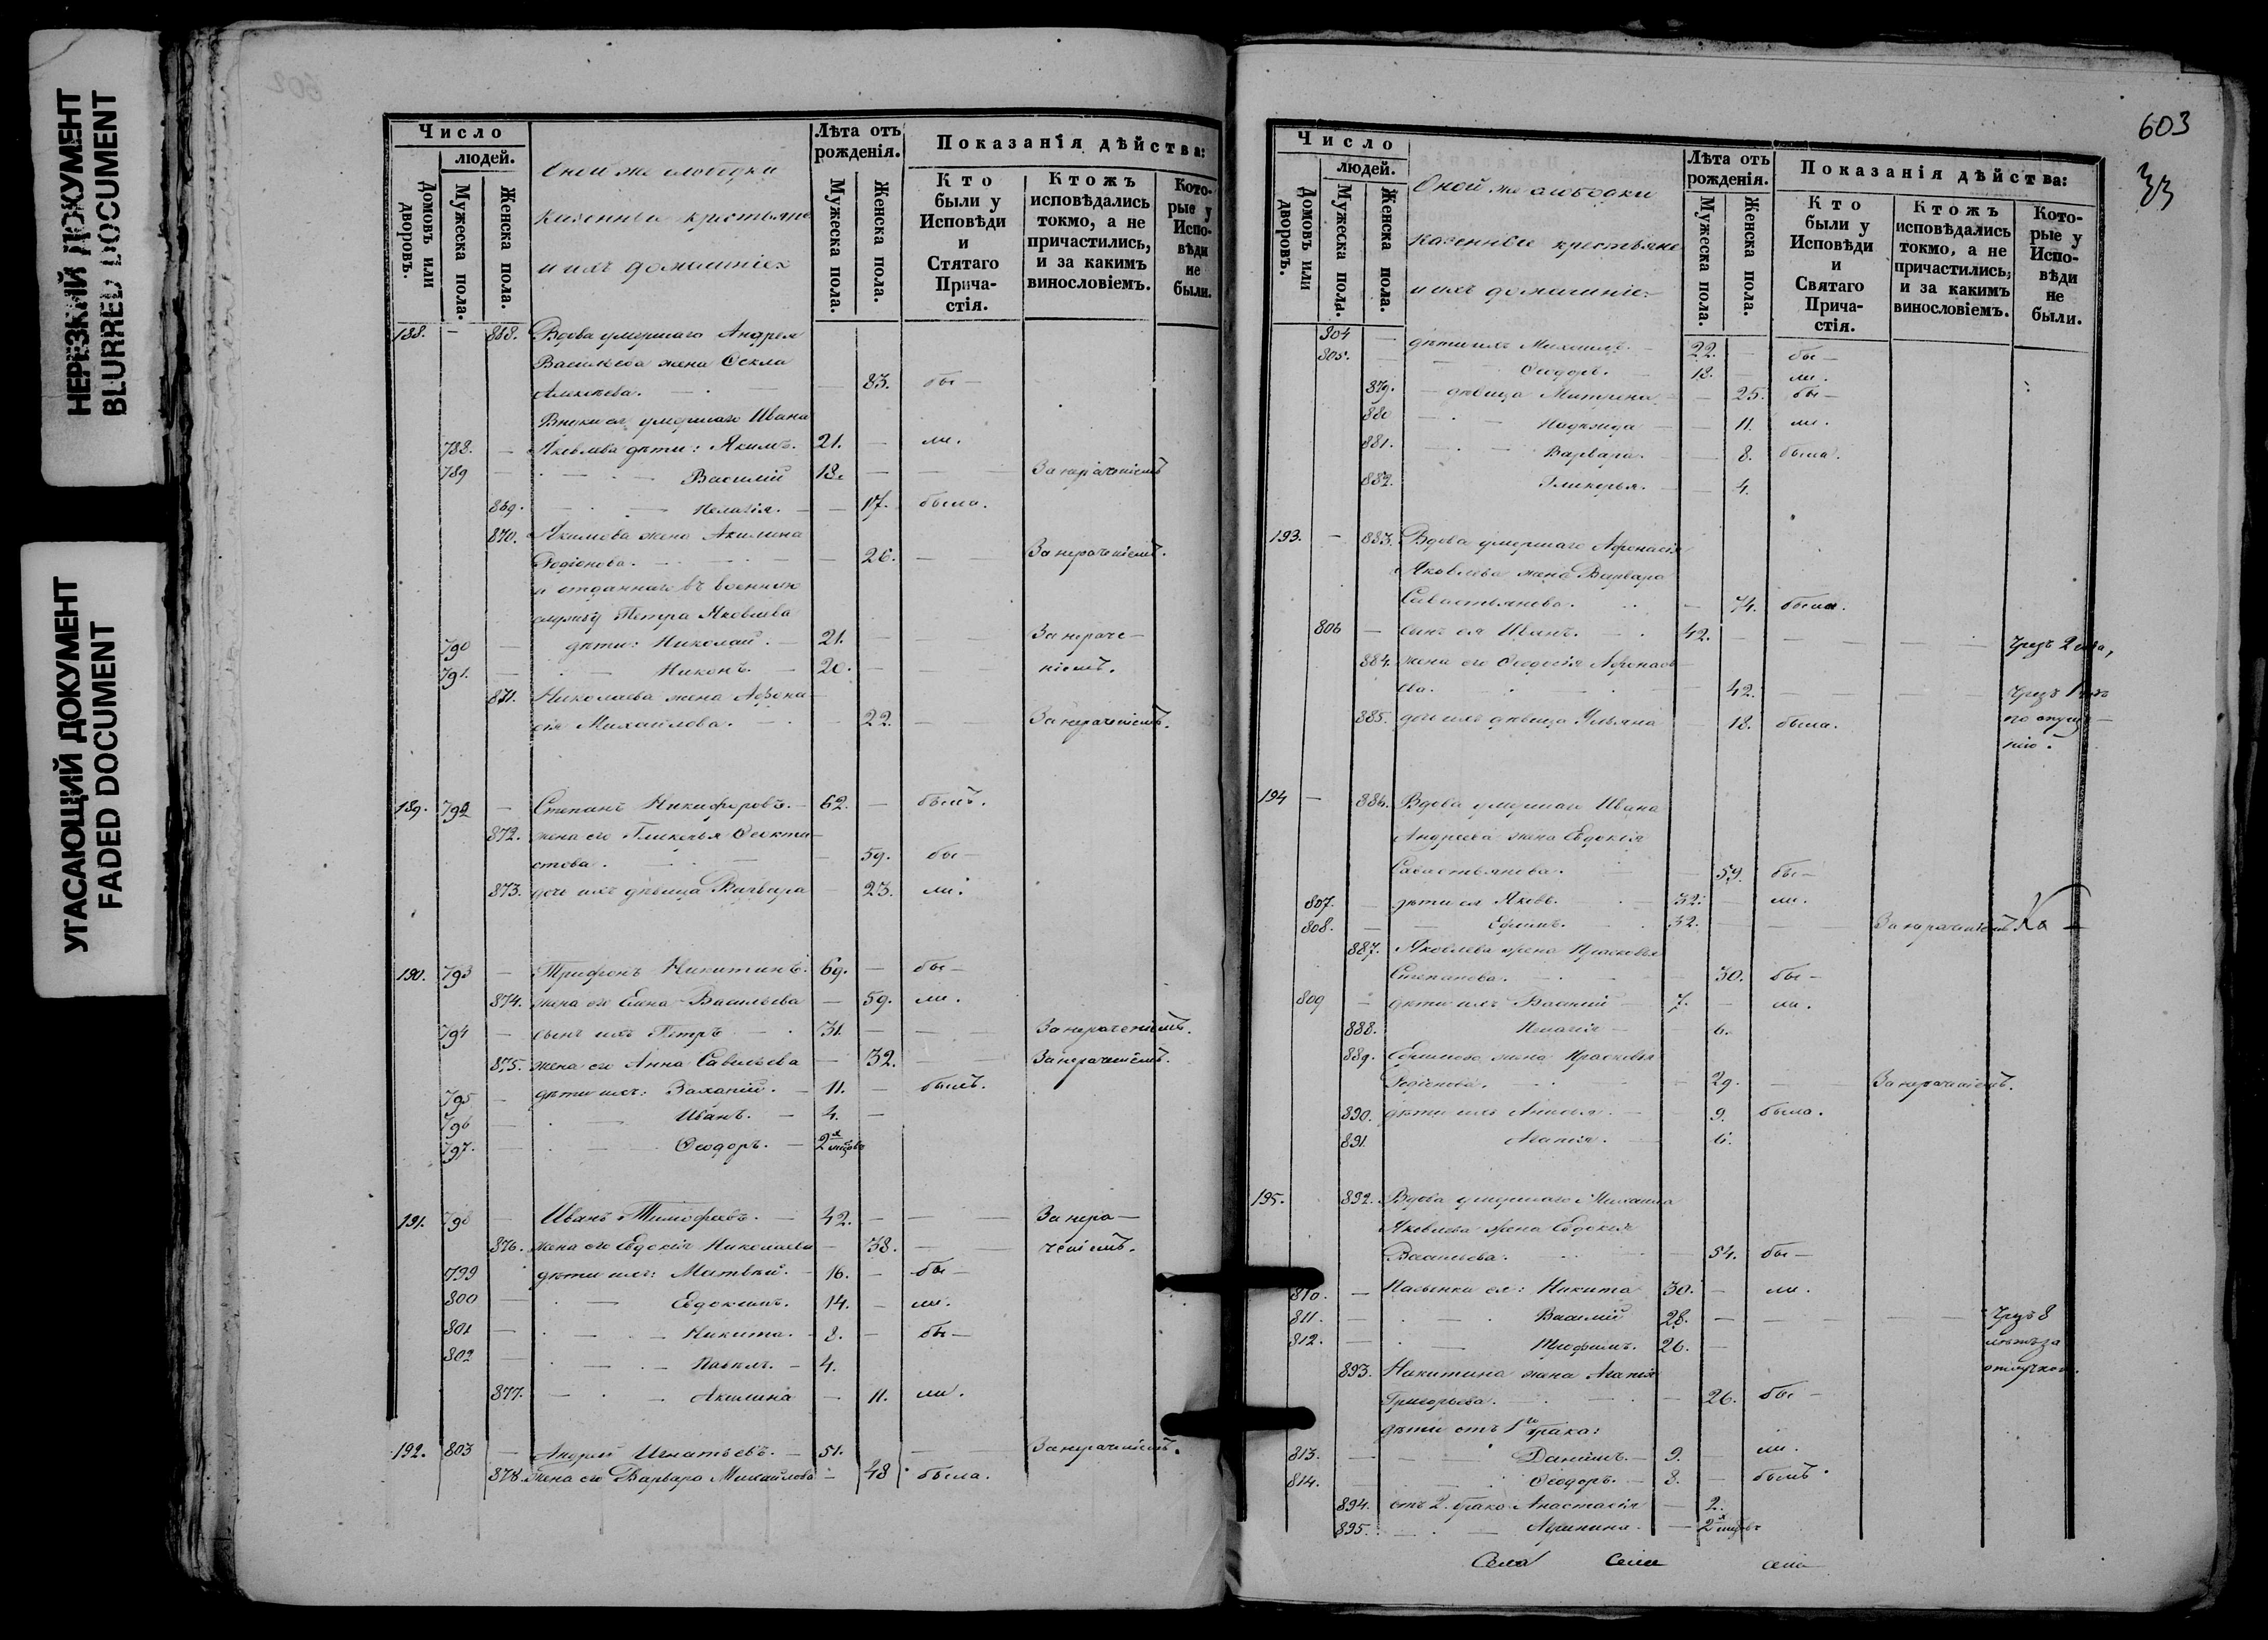 НЕРЕЗКИЙ ДОКУМЕНТ
BLURRED DOCUMENT
УГАСАЮЩИЙ ДОКУМЕНТ
FADED DOCUMENT
Число
людей.
Домовъ или дворовъ.
Мужеска пола.
Женска пола.
Оной же слободки
казенные крестьяне
и ихъ домашніе
Лѣта отъ рожденія.
Мужеска пола.
Женска пола.
Показанія дѣйства:
Кто были у Исповѣди и Стятаго Прича-стія.
Ктожъ исповѣдались токмо, а не причастились, и за какимъ винословіемъ.
Кото-рые у Испо-вѣди не были.
188. — 868. Вдова умершаго Андрея
Васильева жена Ѳекла
Алексѣева. — 83. бы—
Внуки ея умершаго Ивана
788. — Яковлева дѣти: Якимъ. 21. — ли.
789 Василій 18. — — За нераченіемъ
869. Пелагія. — 17. была.
870. Якимова жена Акилина
Родіонова. — 26. — За нераченіемъ.
и отданнаго въ военную
службу Петра Яковлева
790 — дѣти: Николай. — 21. — — За нераче—
791. — Никонъ. — 20. — — ніемъ.
871. Николаева жена Аѳона—
сія Михайлова. — 22. — За нераченіемъ.
189. 792 — Степанъ Никифоровъ. — 62. — былъ.
872. жена его Гликерья Ѳеокти—
стова. — 59. бы—
873. дочь ихъ дѣвица Варвара — 23. ли.
190. 793 — Трифонъ Никитинъ. 69. — бы—
874. жена его Анна Васильева — 59. ли.
794 — сынъ ихъ Петръ — 31. — — За нераченіемъ.
875. жена его Анна Савельева — 32. — За нераченіемъ.
795 — дѣти ихъ: — 11. — былъ.
796 — Иванъ. — 4. —
797. — Ѳеодоръ. — 2х мѣсцовъ
191. 798 — Иванъ Тимофѣевъ. — 42. — — За нера—
876. жена его Евдокія Николаева — 38. — ченіемъ.
799 дѣти ихъ: Матвѣй. — 16. — бы—
800 — Евдокимъ. 14. — ли.
801 — Никита. 8. — бы—
802 — Павелъ. — 4.
877. — Акилина — 11. ли.
192. 803 — Андрей Игнатьевъ. — 51. — За нераченіемъ.
878. жена его Варвара Михайлова — 48 была.
603
33
Число
людей.
Домовъ или дворовъ.
Мужеска пола.
Женска пола.
Оной же слободки
казенные крестьяне
и ихъ домашніе
Лѣта отъ рожденія.
Мужеска пола.
Женска пола.
Показанія дѣйства:
Кто были у Исповѣди и Святаго Прича-стія.
Ктожъ исповѣдались токмо, а не причастились, и за какимъ винословіемъ.
Кото-рые у Испо-вѣди не были.
804 — дѣти ихъ Михаилъ. — 22. — бы—
805. — Ѳеодоръ. — 18. — ли.
879. — дѣвица Матрена — 25. бы—
880 Надежда — 11. ли.
881. Варвара. — 8. была.
882. Гликерья. — 4.
193. — 883. Вдова умершаго Афонасія
Яковлева жена Варвара
Савастьянова. — 74. была.
806 — сынъ ея Иванъ. 42. — — — чрезъ 2 года,
884. жена его Ѳеодосія Афонась—
ева. — 42. — — чрезъ 1
885. дочь ихъ дѣвица Ульяна — 18. была. по опущ—
нію.
194 — 886. Вдова умершаго Ивана
Андреева жена Евдокія
Савастьянова. — 59. бы—
807. — дѣти ея Яковъ. — 32. — ли.
808. — Ефимъ. 32. — — За нераченіемъ
887. Яковлева жена Прасковья
Степанова. — 30. бы—
809 — дѣти ихъ Василій — 7. — ли.
888. Пелагія — 6.
889. Ефимова жена Прасковья
Родіонова. — 29. — За нераченіемъ.
890. дѣти ихъ — 9. была.
891. Агапія. — 6.
195. 892. Вдова умершаго Михаила
Яковлева жена Евдокія
Васильева. — 54. бы—
810. — Пасынки ея: Никита 30. — ли.
811. — Василій 28. — — — чрезъ 8
812. — Трофимъ. 26. — лѣтъ за
893. Никитина жена Агапія отлучкою.
Григорьева. — 26. бы—
дѣти отъ 1го брака:
813. — Даніилъ. — 9. — ли.
814. Ѳеодоръ. — 8. — былъ.
894. отъ 2. брака Анастасія — 2.
895. — — 2х мѣсцовъ
Села Семе села